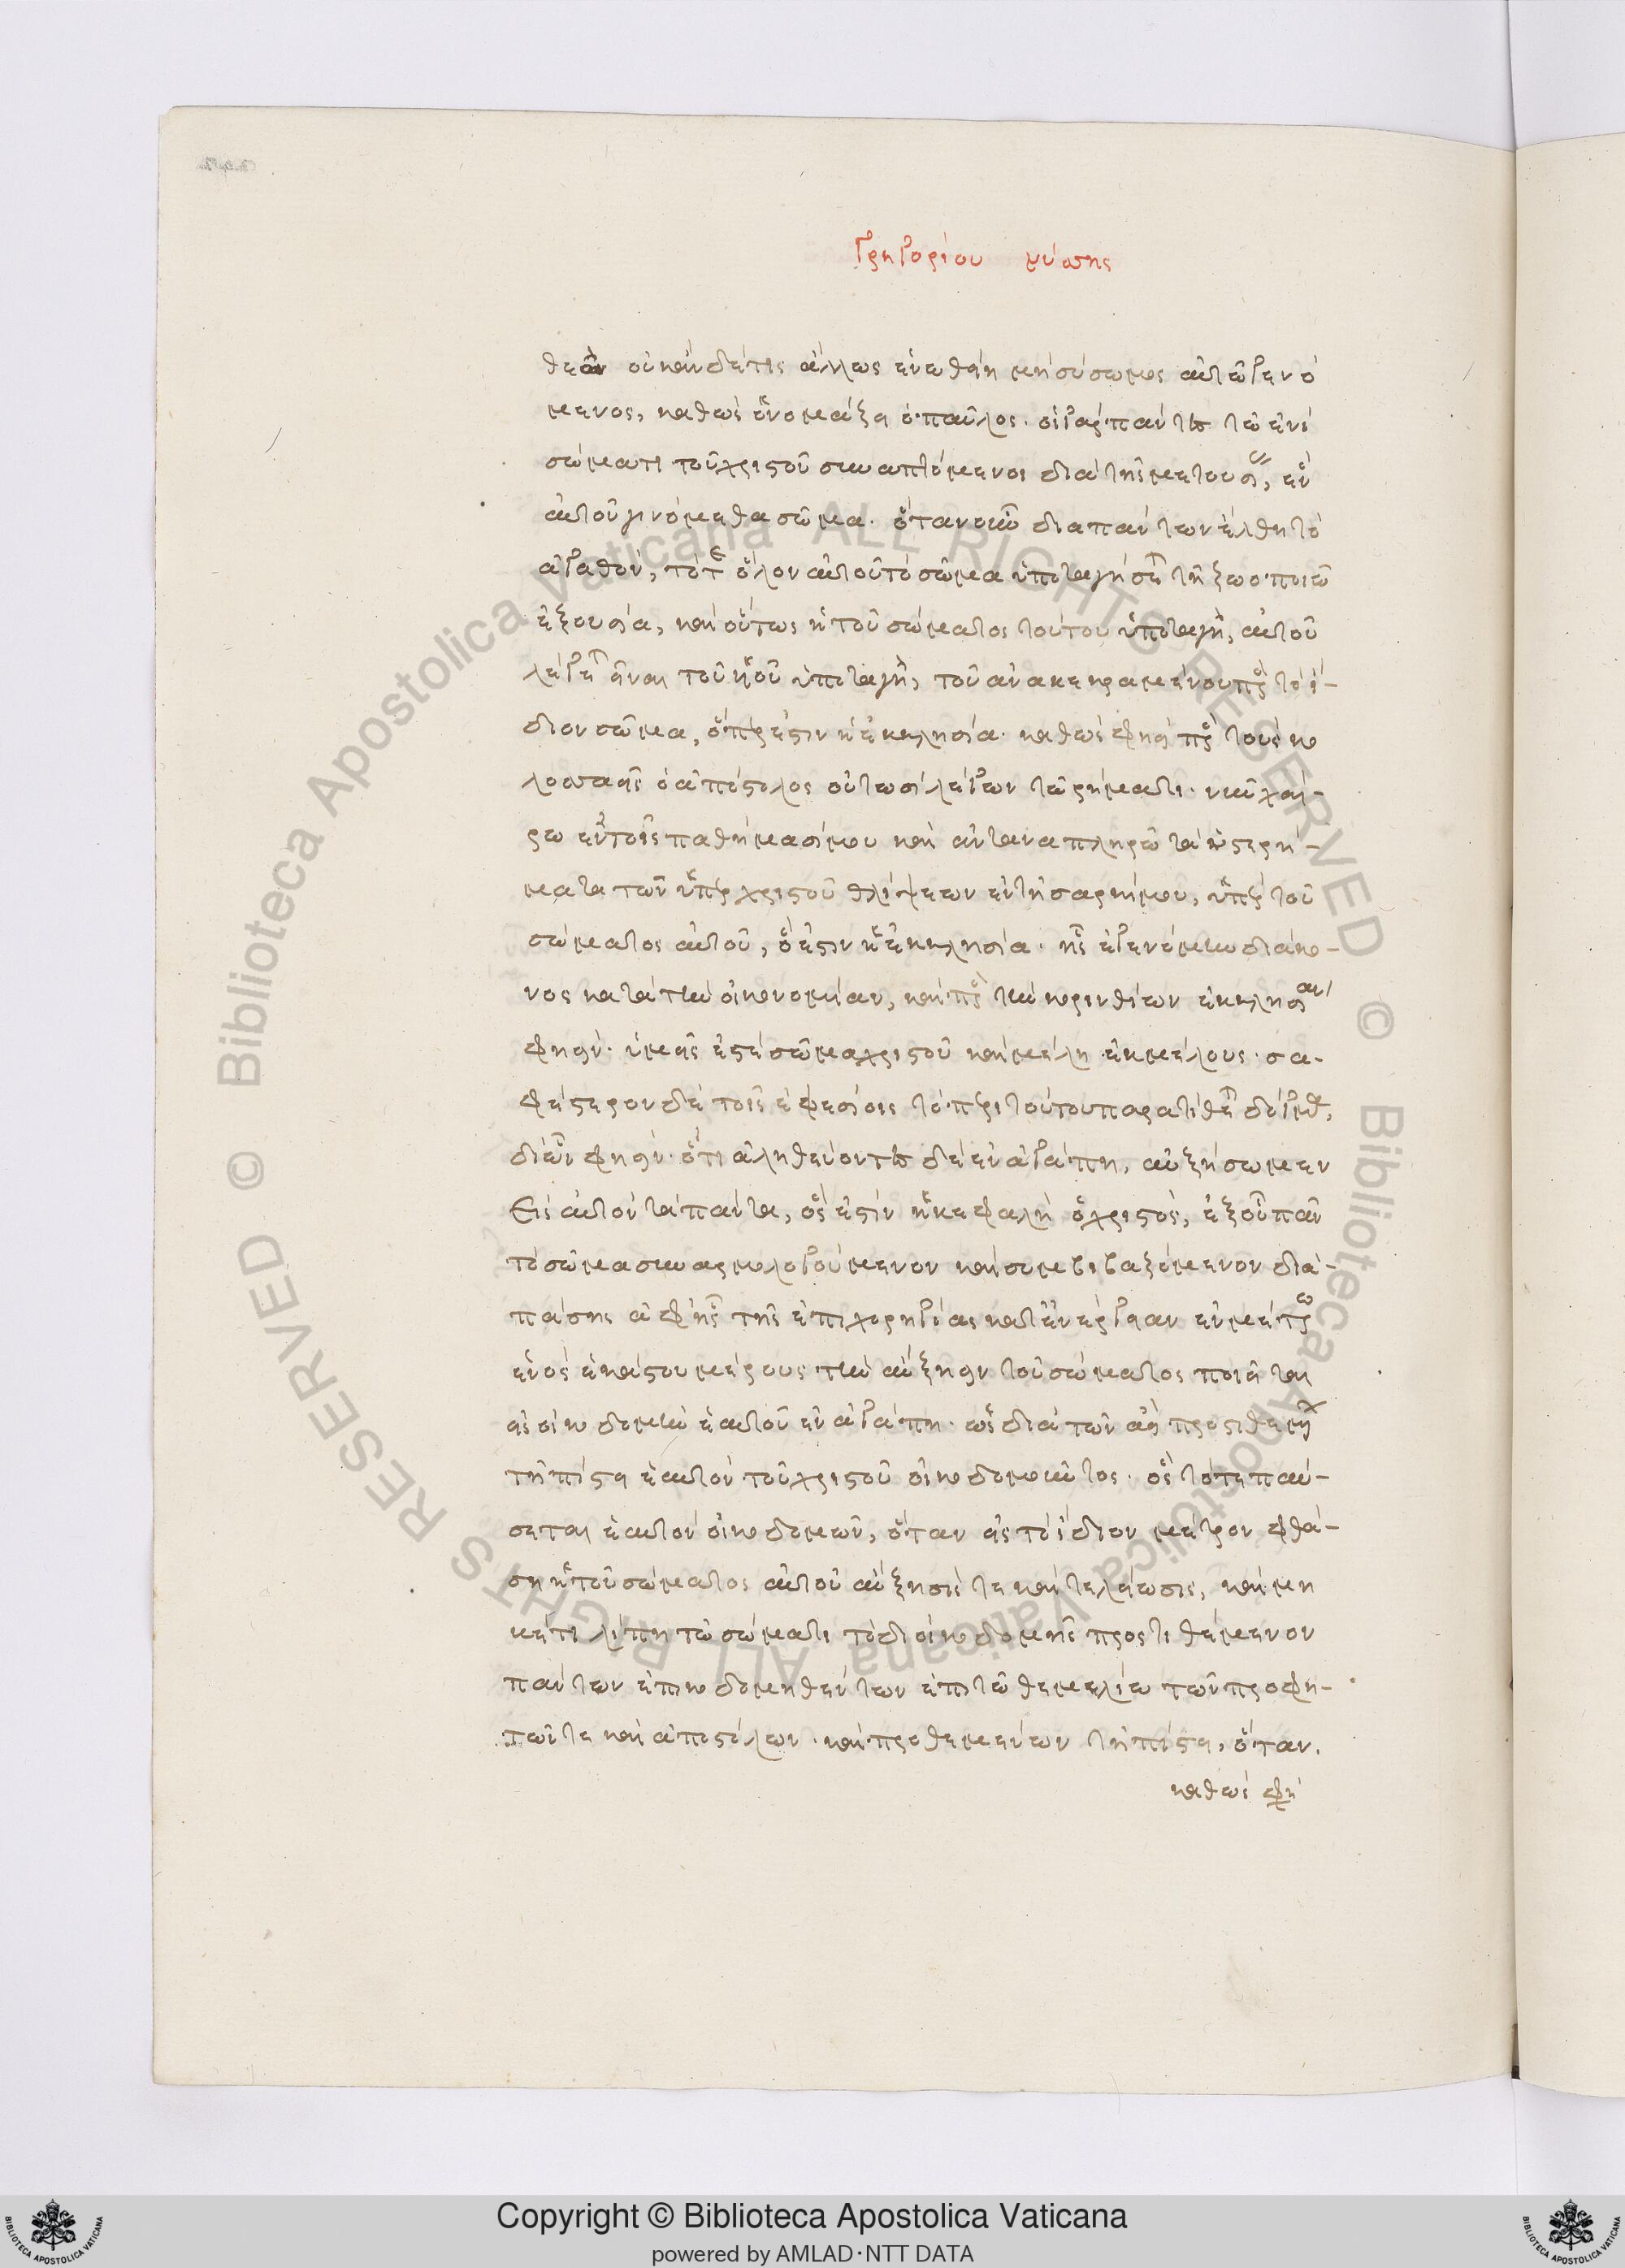 Γρηγορίου νύσσης
θεῶ οὐκ ἄν δέ τις ἄλλως ἑνωθείη μὴ σύσωμος αὐτῶ γενό
μενος, καθὼς ὀνομάζει ὁ παῦλος. οἱ γὰρ πάντες τῶ ἑνὶ
σώματι τοῦ χριστοῦ συναπτόμενοι διὰ τῆς μετουσίας, ἓν
αὐτοῦ γινόμεθα σῶμα. ὅταν οὖν διαπάντων ἔλθη τὸ
ἀγαθὸν, τότε ὅλον αὐτοῦ τὸ σῶμα ὑποταγήσεται τῆ ζωοποιῶ
ἐξουσία, καὶ οὕτως ἡ τοῦ σώματος τούτου ὑποταγὴ, αὐτοῦ
λέγεται εἶναι τοῦ υἱοῦ ὑποταγὴ, τοῦ ἀνακεκραμένου πρὸς τὸ ἴ-
διον σῶμα, ὅπερ ἐστὶν ἡ ἐκκλησία. καθώς φησι πρὸς τοὺς κο
λοσσαεῖς ὁ ἀπόστολος οὑτωσὶ λέγων τῶ ρήματι. νῦν χαί-
ρω ἐν τοῖς παθήμασί μου καὶ ἀνταναπληρῶ τὰ ὑστερή-
ματα τῶν ὑπὲρ χριστοῦ θλίψεων ἐν τῆ σαρκί μου, ὑπὲρ τοῦ
σώματος αὐτοῦ, ὅ ἐστιν ἡ ἐκκλησία. ἧς ἐγενόμην διάκο-
νος κατὰ τὴν οἰκονομίαν, καὶ πρὸς τὴν κορινθίων ἐκκλησίαν
φησίν. ὑμεῖς ἐστὲ σῶμα χριστοῦ καὶ μέλη ἐκ μέλους. σα-
φέστερον δὲ τοῖς ἐφεσίοις τὸ περὶ τούτου παρατίθεται δόγμα,
δι' ὧν φησίν. ὅτι ἀληθεύοντες δὲ ἐν ἀγάπη, αὐξήσωμεν
Εἰς αὐτὸν τὰ πάντα, ὅς ἐστὶν ἡ κεφαλὴ ὁ χριστὸς, ἐξ οὗ πᾶν
τὸ σῶμα συναρμολογούμενον καὶ συμβιβαζόμενον διὰ-
πάσης ἁφῆς τῆς ἐπιχορηγίας κατ' ἐνέργειαν ἐν μέτρω
ἑνὸς ἑκάστου μέρους τὴν αὔξησιν τοῦ σώματος ποιεῖται
εἰς οἰκοδομὴν ἑαυτοῦ ἐν ἀγάπη. ὡς διὰ τῶν ἀεὶ προστιθεμένων
τῆ πίστει ἑαυτὸν τοῦ χριστοῦ οἰκοδομοῦντος. ὃς τότε παύ-
σεται ἑαυτὸν οἰκοδομῶν, ὅταν εἰς τὸ ἴδιον μέτρον φθά-
ση ἡ τοῦ σώματος αὐτοῦ αὔξησίς τε καὶ τελείωσις, καὶ μη
κέτι λίπη τῶ σώματι τὸ δι οἰκοδομῆς προστιθέμενον
πάντων ἐποικοδομηθέντων ἐπὶ τῶ θεμελίω τῶν προφη-
τῶν τε καὶ ἀποστόλων. καὶ προθεμένων τῆ πίστει, ὅταν.
καθὼς φη